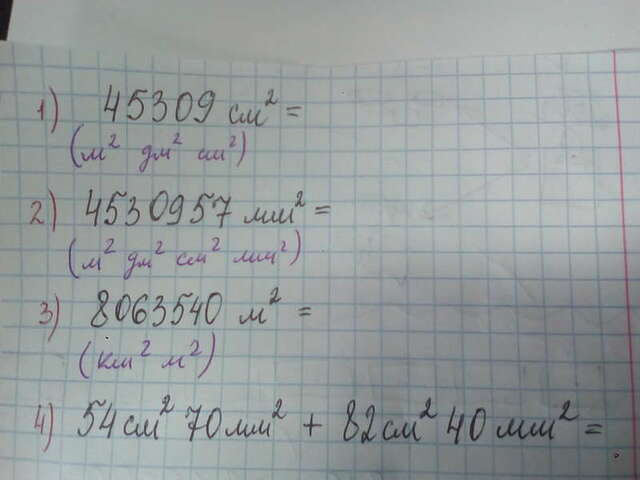 1) 45309 см² =
(м² дм² см²)
2) 4530957 мм² =
(м² дм² см² мм²)
3) 8063540 м² =
(км² м²)
4) 54см² 70мм² + 82см² 40мм² =